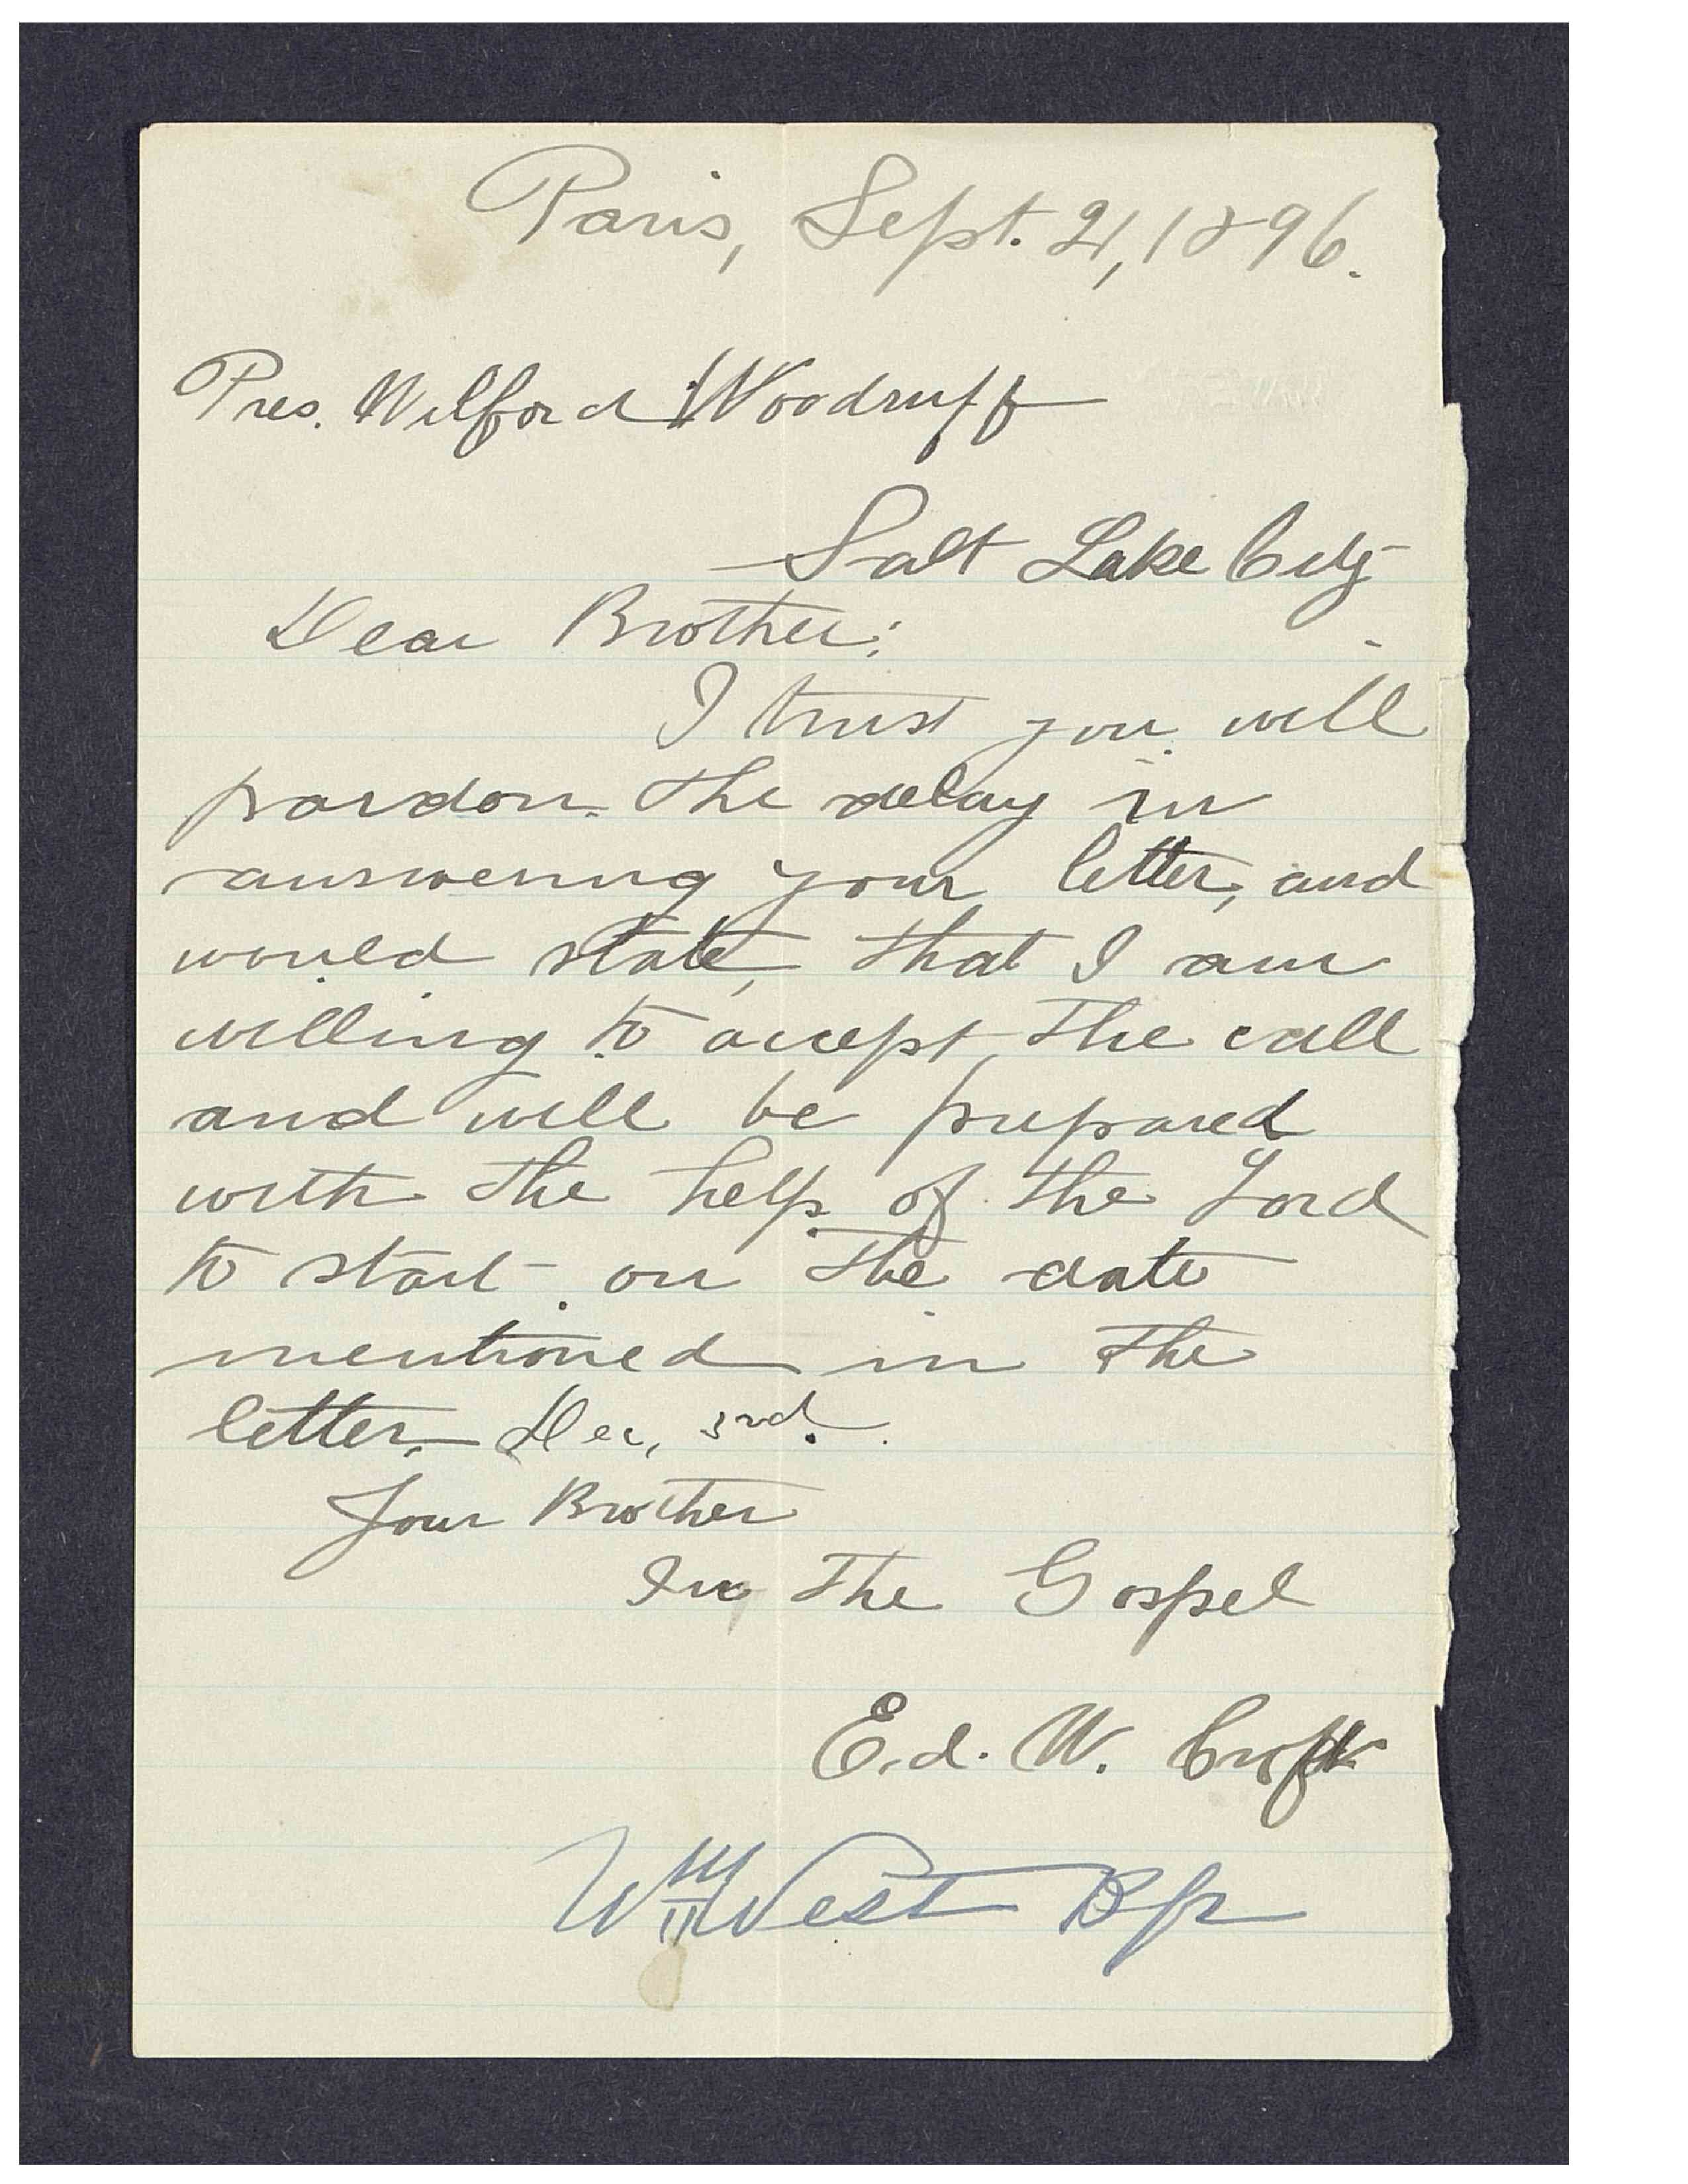 Paris, Sept. 21, 1896.
Pres. Wilford Woodruff
Salt Lake City
Dear Brother:
I trust you will
pardon the delay in
answering your letter, and
would state, that I am
willing to accept the call
and will be prepared
with the help of the Lord
to start on the date
mentioned in the
letter, Dec, 3rd.
Your Brother
In the Gospel
Ed. W. Croft
Wm West Bp